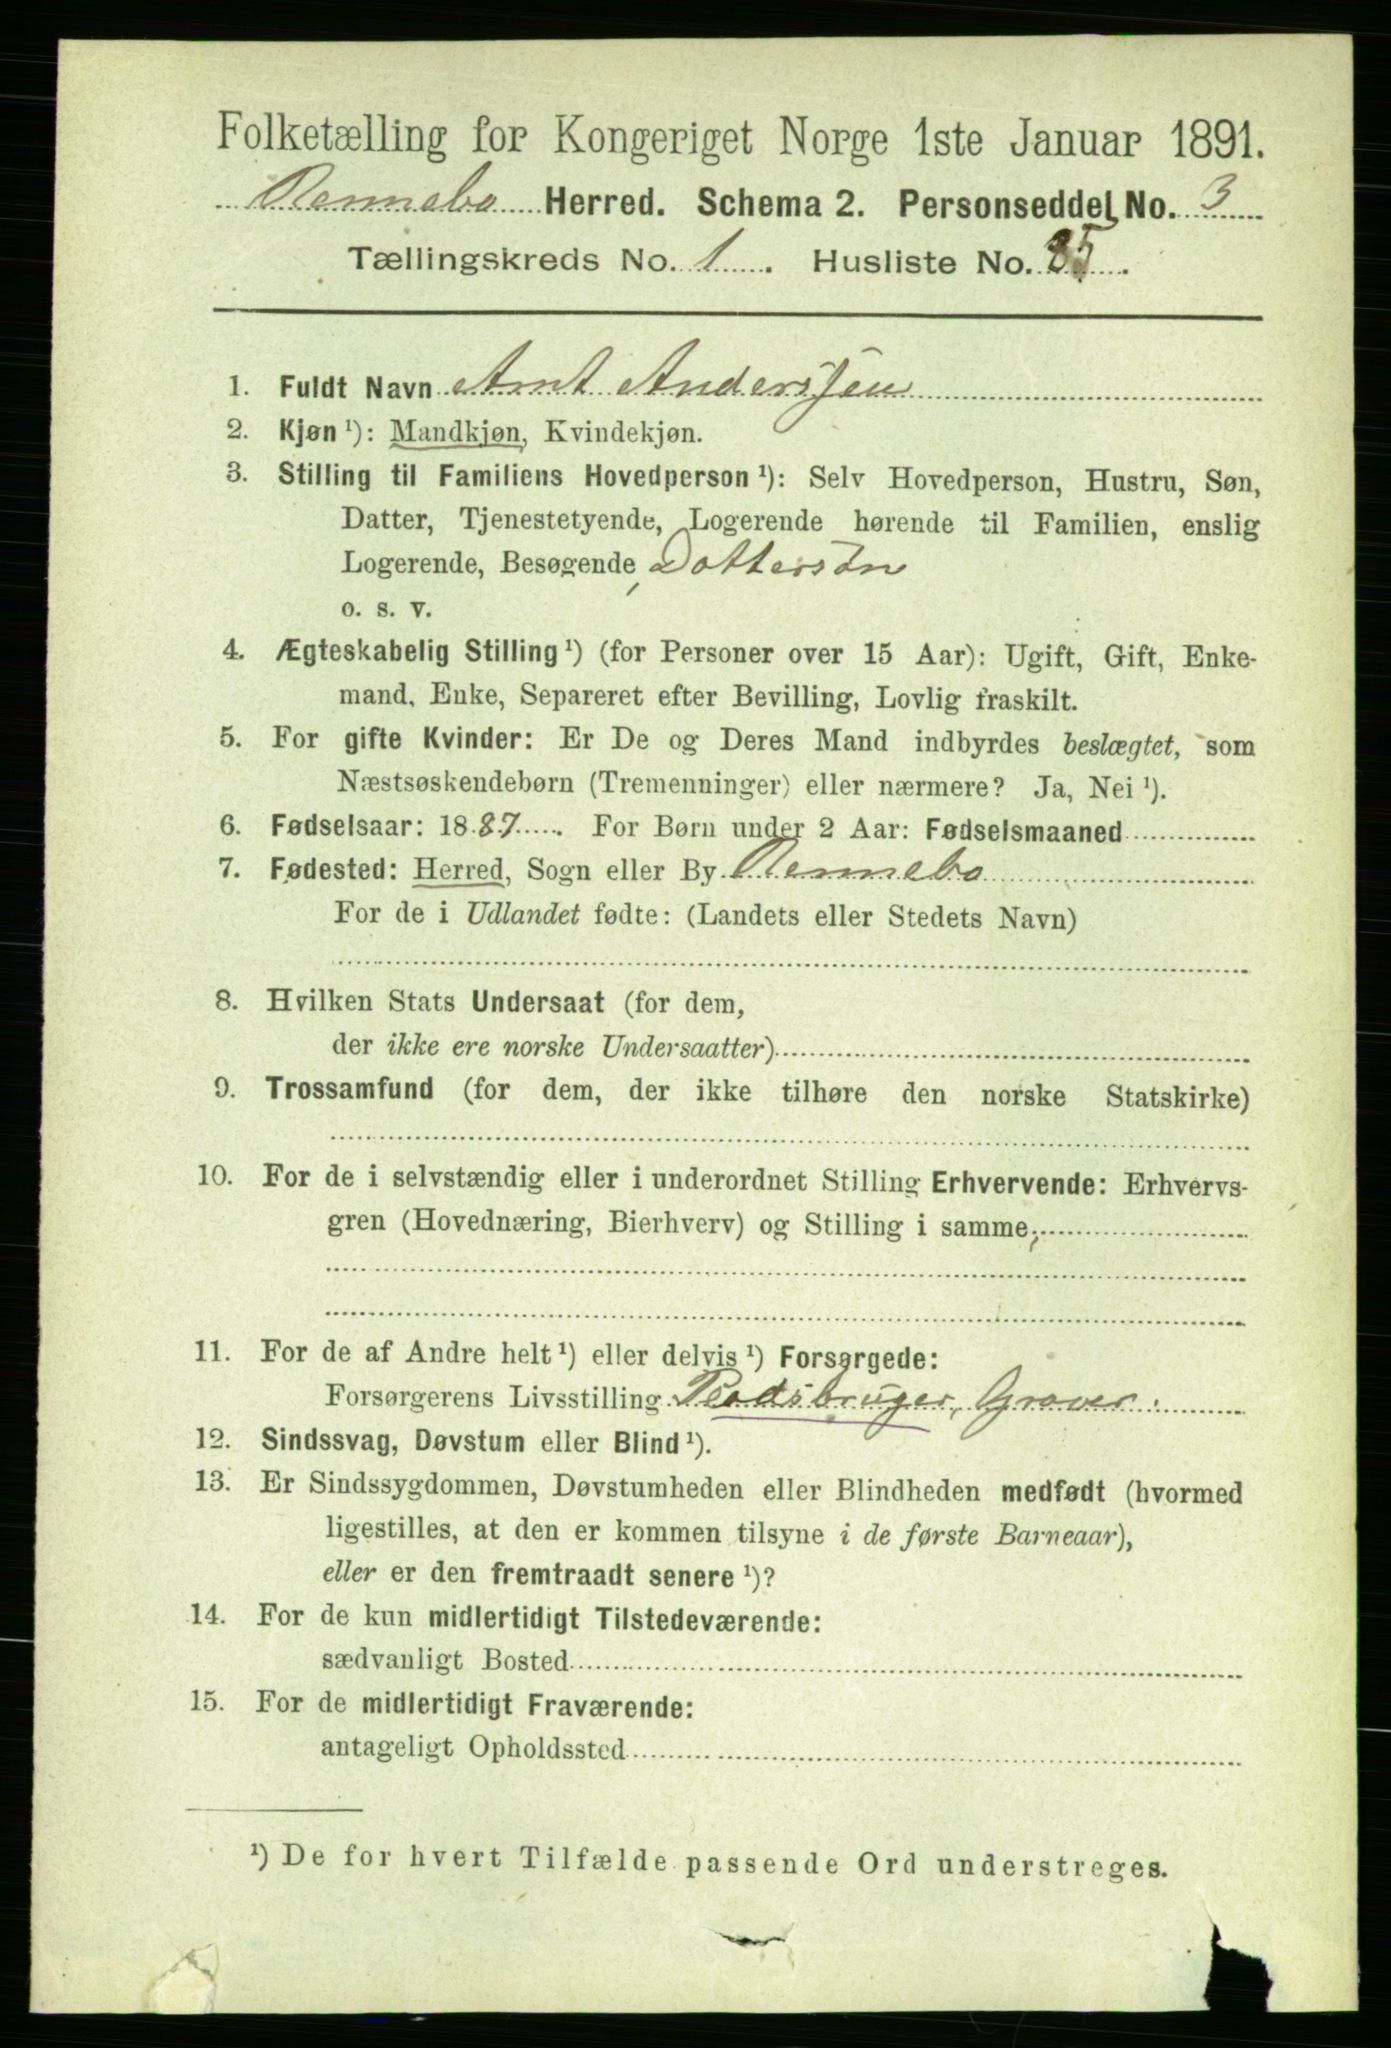 Folketælling for Kongeriget Norge 1ste Januar 1891.
Rennebo Herred. Schema 2. Personseddel No. 3
Tællingskreds No. 1. Husliste No. 35.
1. Fuldt Navn Arnt Anderssen
2. Kjøn ¹): Mandkjøn, Kvindekjøn.
3. Stilling til Familiens Hovedperson ¹): Selv Hovedperson, Hustru, Søn,
Datter, Tjenestetyende, Logerende hørende til Familien, enslig
Logerende, Besøgende, Dattersøn
o. s. v.
4. Ægteskabelig Stilling ¹) (for Personer over 15 Aar): Ugift, Gift, Enke-
mand, Enke, Separeret efter Bevilling, Lovlig fraskilt.
5. For gifte Kvinder: Er De og Deres Mand indbyrdes beslægtet, som
Næstsøskendebørn (Tremenninger) eller nærmere? Ja, Nei ¹).
6. Fødselsaar: 1887. For Børn under 2 Aar: Fødselsmaaned
7. Fødested: Herred, Sogn eller By Rennebo
For de i Udlandet fødte: (Landets eller Stedets Navn)
8. Hvilken Stats Undersaat (for dem,
der ikke ere norske Undersaatter)
9. Trossamfund (for dem, der ikke tilhøre den norske Statskirke)
10. For de i selvstændig eller i underordnet Stilling Erhvervende: Erhvervs-
gren (Hovednæring, Bierhverv) og Stilling i samme,
11. For de af Andre helt ¹) eller delvis ¹) Forsørgede:
Forsørgerens Livsstilling Pladsbruger, Graver.
12. Sindssvag, Døvstum eller Blind ¹).
13. Er Sindssygdommen, Døvstumheden eller Blindheden medfødt (hvormed
ligestilles, at den er kommen tilsyne i de første Barneaar),
eller er den fremtraadt senere ¹)?
14. For de kun midlertidigt Tilstedeværende:
sædvanligt Bosted
15. For de midlertidigt Fraværende:
antageligt Opholdssted
¹) De for hvert Tilfælde passende Ord understreges.